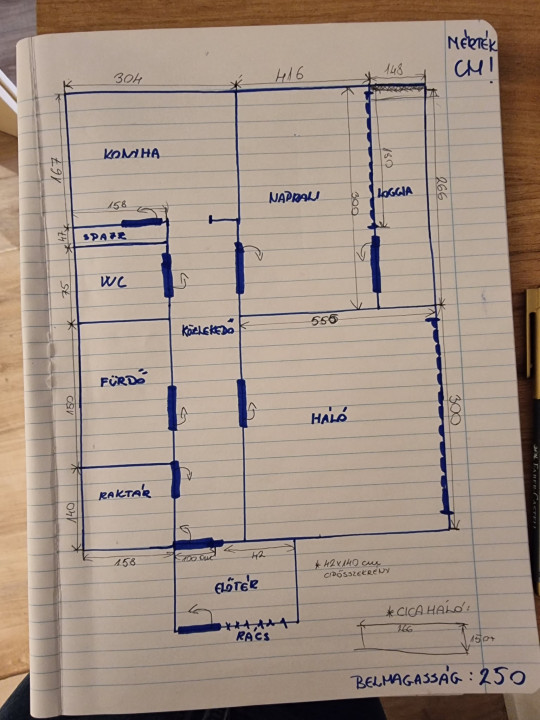 MÉRTÉK
CM!
304
416
148
KONYHA
167
NAPPALI
300
130
LOGGIA
266
158
47
SPAJZ
75
WC
KÖZLEKEDŐ
555
FÜRDŐ
180
HÁLÓ
300
RAKTÁR
140
158
100 cm
42
ELŐTÉR
* 42x140 cm
CIPŐSSZEKRÉNY
RÁCS
* CICAHÁLÓ:
166
150
BELMAGASSÁG: 250